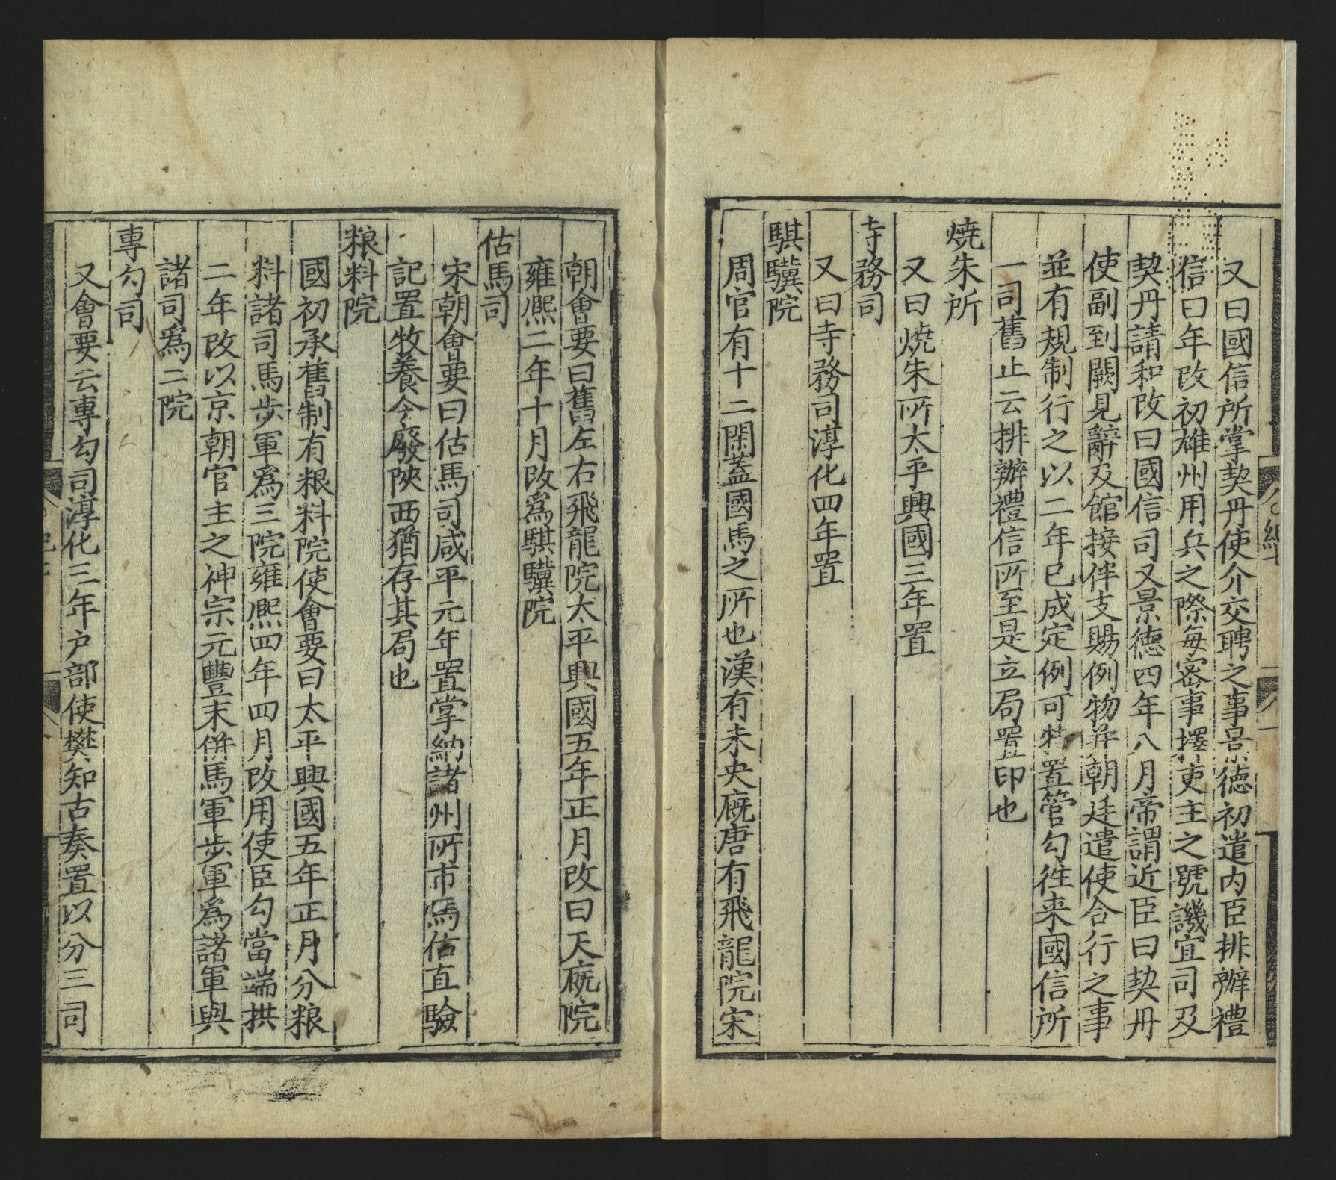 又曰國信所掌契丹使介交聘之事景德初遣内臣排辦禮
信曰年改初雄州用兵之際每密事擇吏主之號譏宜司及
契丹請和改曰國信司又景德四年八月帝謂近臣曰契丹
使副到闕見辭及館接伴支賜例物并朝廷遣使合行之事
並有規制行之以二年已成定例可特置管勾往来國信所
一司舊止云排辦禮信所至是立局置印也
燒朱所
又曰燒朱所太平興國三年置
寺務司
又曰寺務司淳化四年置
騏驥院
周官有十二閑蓋國馬之所也漢有未央廐唐有飛龍院宋
朝會要曰舊左右飛龍院太平興國五年正月改曰天廐院
雍熈二年十月改爲騏驥院
估馬司
宋朝會要曰估馬司咸平元年置掌納諸州所市馬估直驗
記置牧養令廢陜西猶存其局也
粮料院
國初承舊制有粮料院使會要曰太平興國五年正月分粮
料諸司馬步軍爲三院雍熈四年四月改用使臣勾當端拱
二年改以京朝官主之神宗元豐末併馬軍步軍爲諸軍與
諸司爲二院
專勾司
又會要云專勾司淳化三年户部使樊知古奏置以分三司